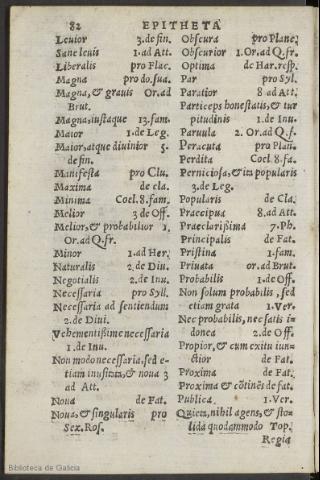 82 EPITHETA
Leuior 3. de fin.
Sane leuis 1. ad Att.
Liberalis pro Flac.
Magna pro do. sua.
Magna, & grauis Or. ad
Brut.
Magna, iustaque 13. fam.
Maior 1. de Leg.
Maior, atque diuinior 5.
de fin.
Manifesta pro Clu.
Maxima de cla.
Minima Coel. 8. fam.
Melior 3 de Off.
Melior, & probabilior 1.
Or. ad Q. fr.
Minor 1. ad Her.
Naturalis 2. de Diu.
Negotialis 2. de Inu.
Necessaria pro Syll.
Necessaria ad sentiendum
2. de Diui.
Vehementissime necessaria
1. de Inu.
Non modo necessaria, sed e-
tiam inusitata, & noua 3
ad Att.
Noua de Fat.
Noua, & singularis pro
Sex. Ros.
Obscura pro Planc.
Obscurior 1. Or. ad Q. fr.
Optima de Har. resp.
Par pro Syl.
Paratior 8 ad Att.
Particeps honestatis, & tur
pitudinis 1. de Inu.
Paruula 2. Or. ad Q. f.
Peracuta pro Plan.
Perdita Coel. 8. fa.
Perniciosa, & in popularis
3. de Leg.
Popularis de Cla.
Praecipua 8. ad Att.
Praeclarissima 7. Ph.
Principalis de Fat.
Pristina 1. fam.
Priuata or. ad Brut.
Probabilis 1. de Off.
Non solum probabilis, sed
etiam grata 1. Ver.
Nec probabilis, nec satis i-
donea 2. de Off.
Propior, & cum exitu iun-
ctior de Fat.
Proxima de Fat.
Proxima & cõtinẽs de fat.
Publica 1. Ver.
Quieta, nihil agens, & sto-
lida quodammodo Top.
Regia
Biblioteca de Galicia